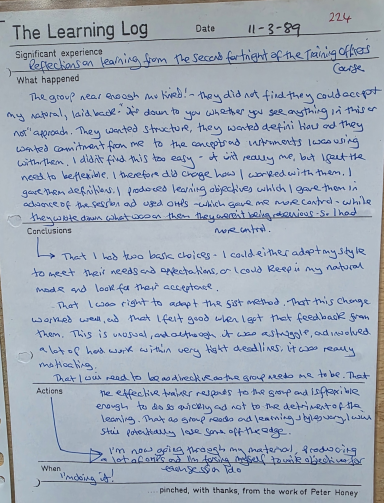 224
The Learning Log
Date 11-3-89
Significant experience
Reflections on learning from the second fortnight of the Training Officers
Course
What happened
The group near enough mutinied! - they did not find they could accept
my natural, laid back "it's down to you whether you see anything in this or
not" approach. They wanted structure, they wanted definitions and they
wanted commitment from me to the concepts and instruments I was using
with them. I didn't find this too easy - it was really me, but I felt the
need to be flexible. I therefore did change how I worked with them. I
gave them definitions. I produced learning objectives which I gave them in
advance of the session and used OHPs - which gave me more control - while
they wrote down what was on them they weren't being rebellious - so I had
more control.
Conclusions
That I had two basic choices - I could either adapt my style
to meet their needs and expectations, or I could keep in my natural
mode and look for their acceptance.
That I was right to adopt the first method. That this change
worked well, and that I felt good when I got that feedback from
them. This is unusual, and although it was a struggle, and involved
a lot of hard work within very tight deadlines, it was really
motivating.
That I was need to be as directive as the group needs me to be. That
Actions
the effective trainer responds to the group and is flexible
enough to do so quickly and not to the detriment of the
learning. That as group needs and learning styles vary, I was
still potentially lose some off the edge.
I'm now going through my material, producing
a lot of OHPs and I'm forcing myself to write objectives for
each session I do
When
"making it!"
... pinched, with thanks, from the work of Peter Honey